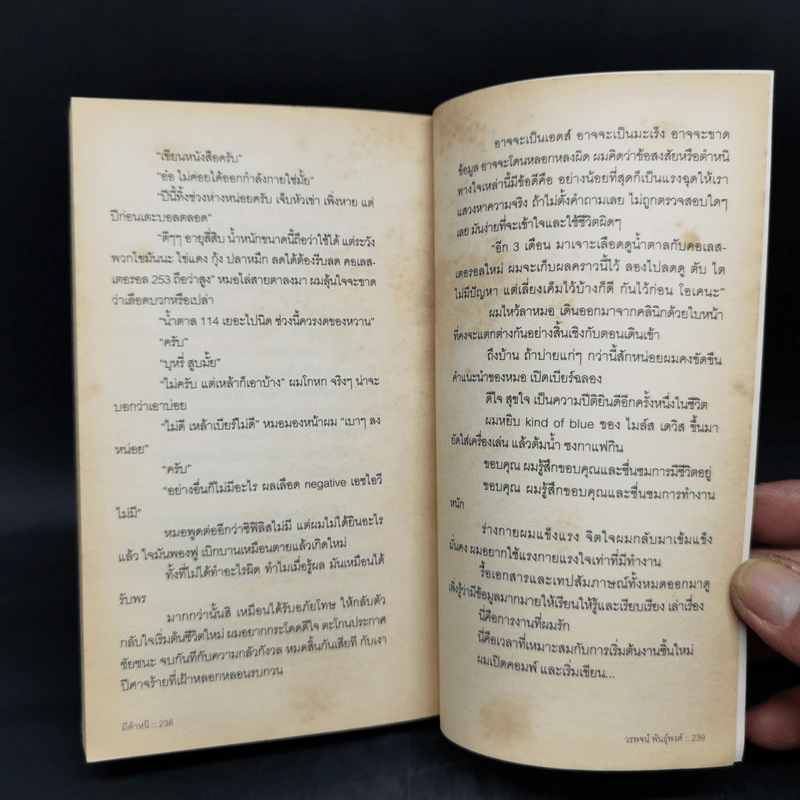 "เขียนหนังสือครับ"
"อ๋อ ไม่ค่อยได้ออกกำลังกายใช่มั้ย"
"ปีนี้ทิ้งช่วงห่างหน่อยครับ เจ็บหัวเข่า เพิ่งหาย แต่
ปีก่อนเตะบอลตลอด"
"ดีๆๆ อายุสี่สิบ น้ำหนักขนาดนี้ถือว่าใช้ได้ แต่ระวัง
พวกไขมันนะ ไข่แดง กุ้ง ปลาหมึก ลดได้ต้องรีบลด คอเลส-
เตอรอล 253 ถือว่าสูง" หมอไล่สายตาลงมา ผมลุ้นใจจะขาด
ว่าเลือดบวกหรือเปล่า
"น้ำตาล 114 เยอะไปนิด ช่วงนี้ควรงดของหวาน"
"ครับ"
"บุหรี่ สูบมั้ย"
"ไม่ครับ แต่เหล้าก็เอาบ้าง" ผมโกหก จริงๆ น่าจะ
บอกว่าเอาบ่อย
"ไม่ดี เหล้าเบียร์ไม่ดี" หมอมองหน้าผม "เบาๆ ลง
หน่อย"
"ครับ"
"อย่างอื่นก็ไม่มีอะไร ผลเลือด negative เอชไอวี
ไม่มี"
หมอพูดต่ออีกว่าซิฟิลิสไม่มี แต่ผมไม่ได้ยินอะไร
แล้ว ใจมันพองฟู เบิกบานเหมือนตายแล้วเกิดใหม่
ทั้งที่ไม่ได้ทำอะไรผิด ทำไมเมื่อรู้ผล มันเหมือนได้
รับพร
มากกว่านั้นสิ เหมือนได้รับอภัยโทษ ให้กลับตัว
กลับใจเริ่มต้นชีวิตใหม่ ผมอยากกระโดดดีใจ ตะโกนประกาศ
ชัยชนะ จบกันทีกับความกลัวกังวล หมดสิ้นกันเสียที กับเงา
ปีศาจร้ายที่เฝ้าหลอกหลอนรบกวน
มีตำหนิ :: 238
อาจจะเป็นเอดส์ อาจจะเป็นมะเร็ง อาจจะขาด
ข้อมูล อาจจะโดนหลอกหลงผิด ผมคิดว่าข้อสงสัยหรือตำหนิ
ทางใจเหล่านี้มีข้อดีคือ อย่างน้อยที่สุดก็เป็นแรงฉุดให้เรา
แสวงหาความจริง ถ้าไม่ตั้งคำถามเลย ไม่ถูกตรวจสอบใดๆ
เลย มันง่ายที่จะเข้าใจและใช้ชีวิตผิดๆ
"อีก 3 เดือน มาเจาะเลือดดูน้ำตาลกับคอเลส-
เตอรอลใหม่ ผมจะเก็บผลคราวนี้ไว้ ลองไปลดดู ตับ ไต
ไม่มีปัญหา แต่เลี่ยงเค็มไว้บ้างก็ดี กันไว้ก่อน โอเคนะ"
ผมไหว้ลาหมอ เดินออกมาจากคลินิกด้วยใบหน้า
ที่คงจะแตกต่างกันอย่างสิ้นเชิงกับตอนเดินเข้า
ถึงบ้าน ถ้าบ่ายแก่ๆ กว่านี้สักหน่อยผมคงขัดขืน
คำแนะนำของหมอ เปิดเบียร์ฉลอง
ดีใจ สุขใจ เป็นความปีติยินดีอีกครั้งหนึ่งในชีวิต
ผมหยิบ kind of blue ของ ไมล์ส เดวิส ขึ้นมา
ยัดใส่เครื่องเล่น แล้วต้มน้ำ ชงกาแฟกิน
ขอบคุณ ผมรู้สึกขอบคุณและชื่นชมการมีชีวิตอยู่
ขอบคุณ ผมรู้สึกขอบคุณและชื่นชมการทำงาน
หนัก
ร่างกายผมแข็งแรง จิตใจผมกลับมาเข้มแข็ง
มั่นคง ผมอยากใช้แรงกายแรงใจเท่าที่มีทำงาน
รื้อเอกสารและเทปสัมภาษณ์ทั้งหมดออกมาดู
เพิ่งรู้ว่ามีข้อมูลมากมายให้เรียนให้รู้และเรียบเรียง เล่าเรื่อง
นี่คือการงานที่ผมรัก
นี่คือเวลาที่เหมาะสมกับการเริ่มต้นงานชิ้นใหม่
ผมเปิดคอมพ์ และเริ่มเขียน...
วรพจน์ พันธุ์พงศ์ :: 239